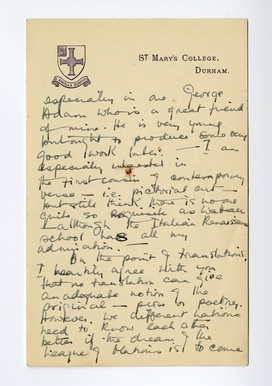 ST MARY'S COLLEGE,
DURHAM.
especially in one George
Adam who is a great friend
of mine. He is very young
but ought to produce some very
good work later. — I am
especially interested in
the first cousin of contemporary
verse — i.e. pictorial art —
but still think there is no one
quite so exquisite as Watteau
— although the Italian Renaissance
school has all my
admiration.
On the point of translations,
I heartily agree with you
that no translation can give
an adequate notion of the
original — prose or poetry.
However we different nations
need to know each other
better if the dream of the
League of Nations is to come